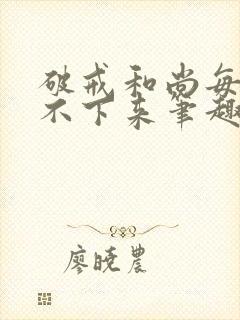 破戒和尚每
不下来笔趣
廖晓农